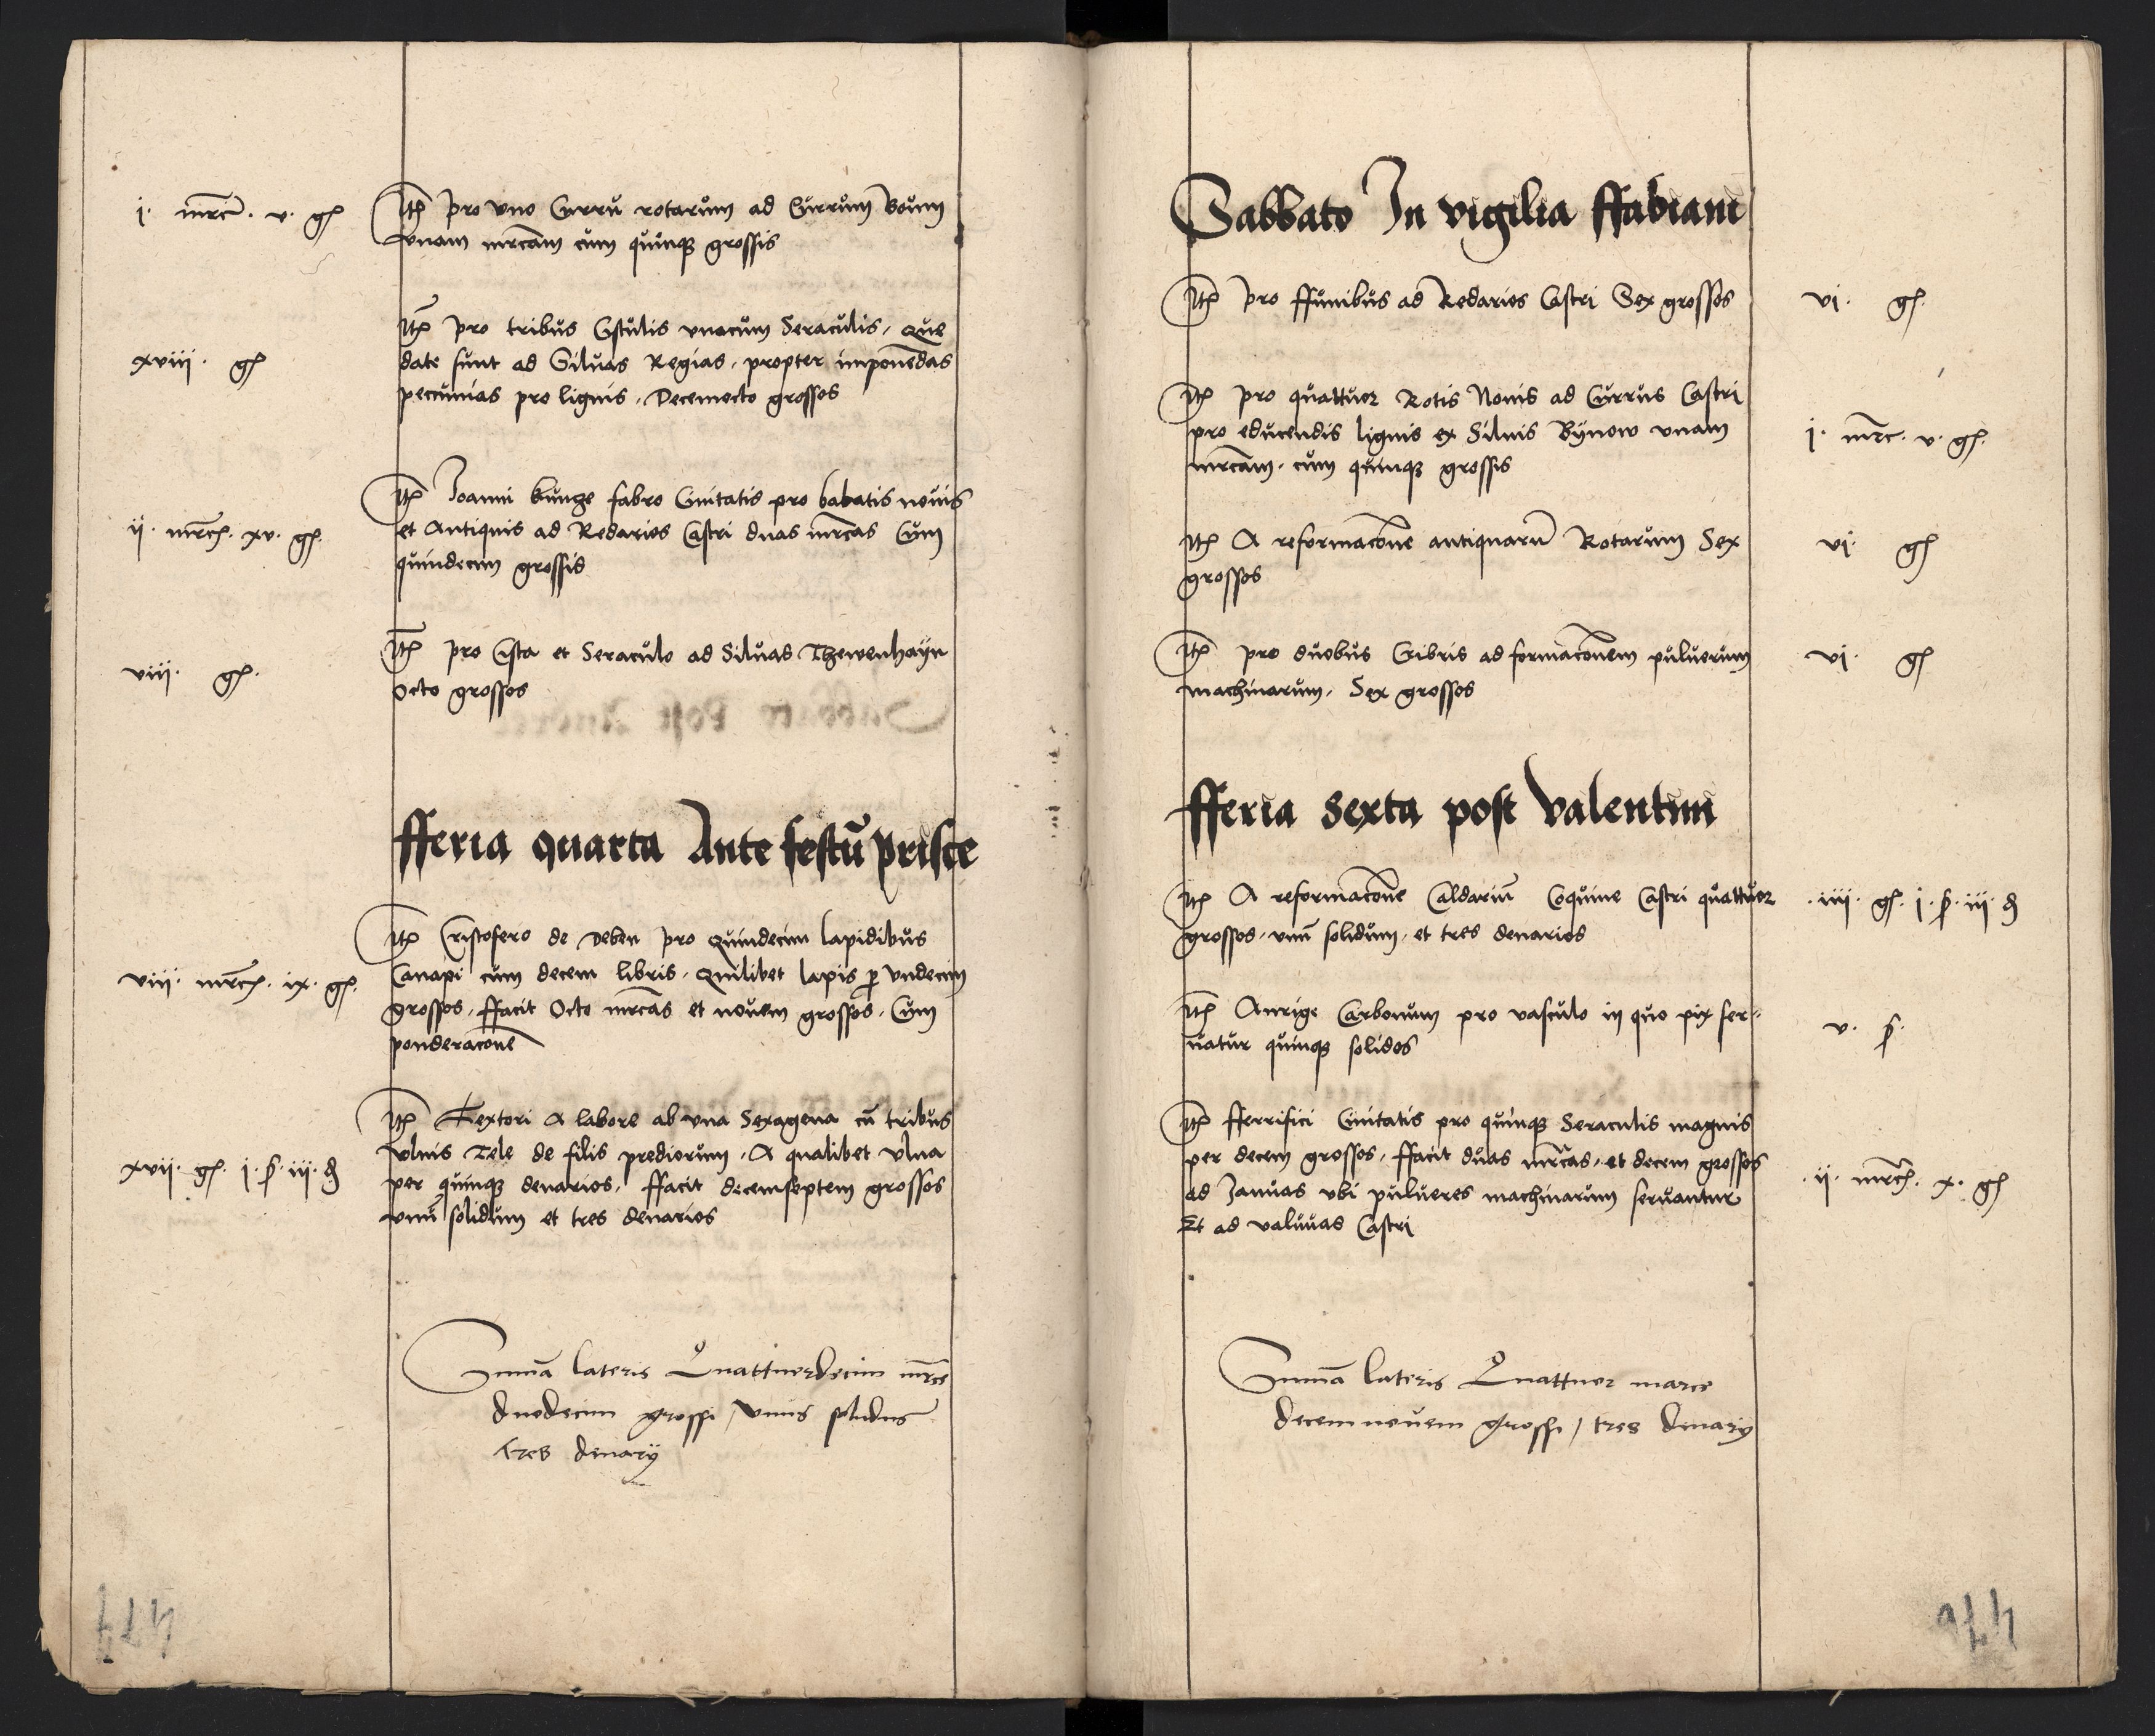 i. mrcā. v. gͬ
Itͫ pro vno Curru rotarum ad Currum Boum
vnam mrcam cum quinqꝫ grossis
xviii. gͬ
Itͫ pro tribus Cistulis vnacum Seraculis, que
date sunt ad Siluas Regias, propter imponēdas
peccunias pro lignis, Decemocto grossos
ii. mrcͬ. xv. gͬ.
Itͫ Joanni kunze fabro Ciuitatis pro babatis nouis
et Antiquis ad Redarios Castri duas mrcas Cum
quindecim grossis
viii. gͬ.
Itͫ pro Cista et Seraculo ad Siluas Thewenhayn
octo grossos
fferia quarta Ante festū prisce
viii. mrcͬ. ix. gͬ.
Itͫ Cristofero de Deben pro quindecim lapidibus
Canapi cum decem libris, Quilibet lapis ꝑ vndecim
grossos, ffacit Octo mrcas et nouem grossos, Cum
ponderacōne
xvii. gͬ. i. ẜ. iii. ₰
Itͫ Textori A labore ab vna Sexagena cū tribus
vlnis Tele de filis prediorum, A qualibet vlna
per quinqꝫ denarios, ffacit decemseptem grossos
vnū solidum et tres denarios
Summa lateris Quattuordecim mrce
duodecim grossi / vnus solidus
tres denarij
477
Sabbato In vigilia ffabiani
Itͫ pro ffunibus ad Redarios Castri Sex grossos
vi. gͬ.
Itͫ pro quattuor Rotis Nouis ad Currus Castri
pro educendis lignis ex Siluis Bynow vnam
mrcam, cum quinqꝫ grossis
i. mrc. v. gͬ.
Itͫ A reformacōne antiquarū Rotarum Sex
grossos
vi. gͬ
Itͫ pro duobus Cribris ad formacōnem puluerum
machinarum, Sex grossos
vi. gͬ
fferia Sexta post Valentini
Itͫ A reformacōne Caldariū Coquine Castri quattuor
grossos, vnū solidum, et tres denarios
.iiii. gͬ. i. ẜ. iii. ₰
Itͫ Aurige Carbonum pro vasculo in quo pix ser-
uatur quinqꝫ solidos
v. ẜ.
Itͫ fferrifici Ciuitatis pro quinqꝫ Seraculis magnis
per decem grossos, ffacit duas mrcas, et decem grossos
ad Januas vbi pulueres machinarum seruantur
Et ad valuuas Castri
.ii. mrcͬ. x. gͬ
Summa lateris Quattuor marce
decemnouem grossi / tres denarij
476